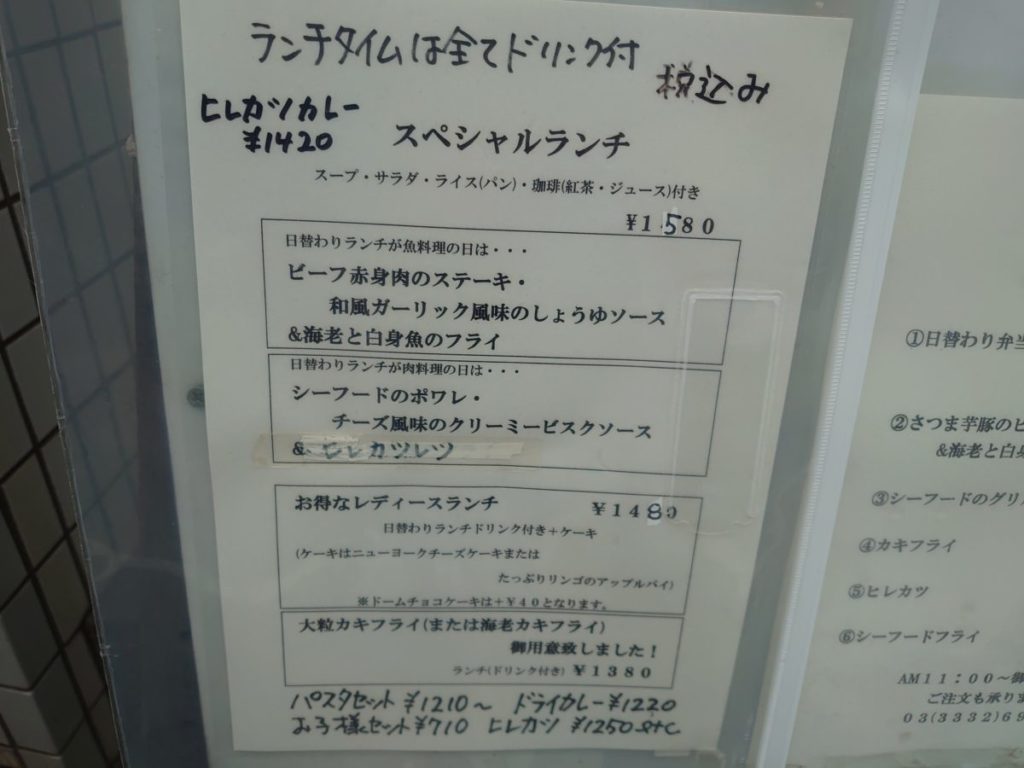 ランチタイムは全てドリンク付
税込み
ヒレカツカレー
¥1420
スペシャルランチ
スープ・サラダ・ライス(パン)・珈琲(紅茶・ジュース)付き
¥1580
日替わりランチが魚料理の日は・・・
ビーフ赤身肉のステーキ・
和風ガーリック風味のしょうゆソース
&海老と白身魚のフライ
日替わりランチが肉料理の日は・・・
シーフードのポワレ・
チーズ風味のクリーミービスクソース
&ヒレカツレツ
お得なレディースランチ ¥1480
日替わりランチドリンク付き+ケーキ
(ケーキはニューヨークチーズケーキまたは
たっぷりリンゴのアップルパイ)
※ドームチョコケーキは+¥40となります。
大粒カキフライ(または海老カキフライ)
御用意致しました！
ランチ(ドリンク付き) ¥1380
パスタセット ¥1210〜 ドライカレー¥1220
お子様セット¥710 ヒレカツ ¥1250 etc
①日替わり弁当
②さつま芋豚のヒ
&海老と白身
③シーフードのグリ
④カキフライ
⑤ヒレカツ
⑥シーフードフライ
AM11：00〜御
ご注文も承りま
03(3332)69